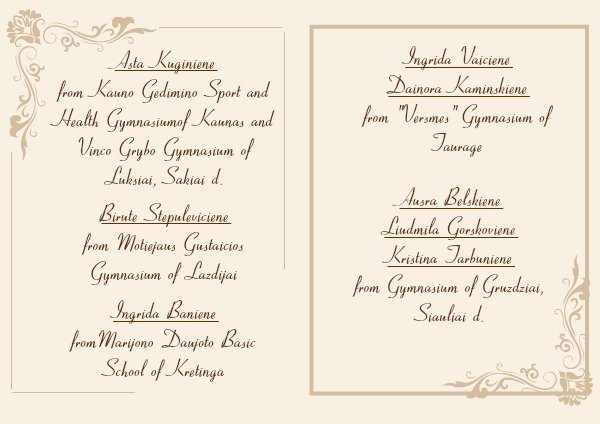 Asta Kuginiene
from Kauno Gedimino Sport and
Health Gymnasiumof Kaunas and
Vinco Grybo Gymnasium of
Luksiai, Sakiai d.
Birute Stepuleviciene
from Motiejaus Gustaicios
Gymnasium of Lazdijai
Ingrida Baniene
fromMarijono Daujoto Basic
School of Kretinga
Ingrida Vaiciene
Dainora Kaminskiene
from "Versmes" Gymnasium of
Taurage
Ausra Belskiene
Liudmila Gorskoviene
Kristina Tarbuniene
from Gymnasium of Gruzdziai,
Siauliai d.